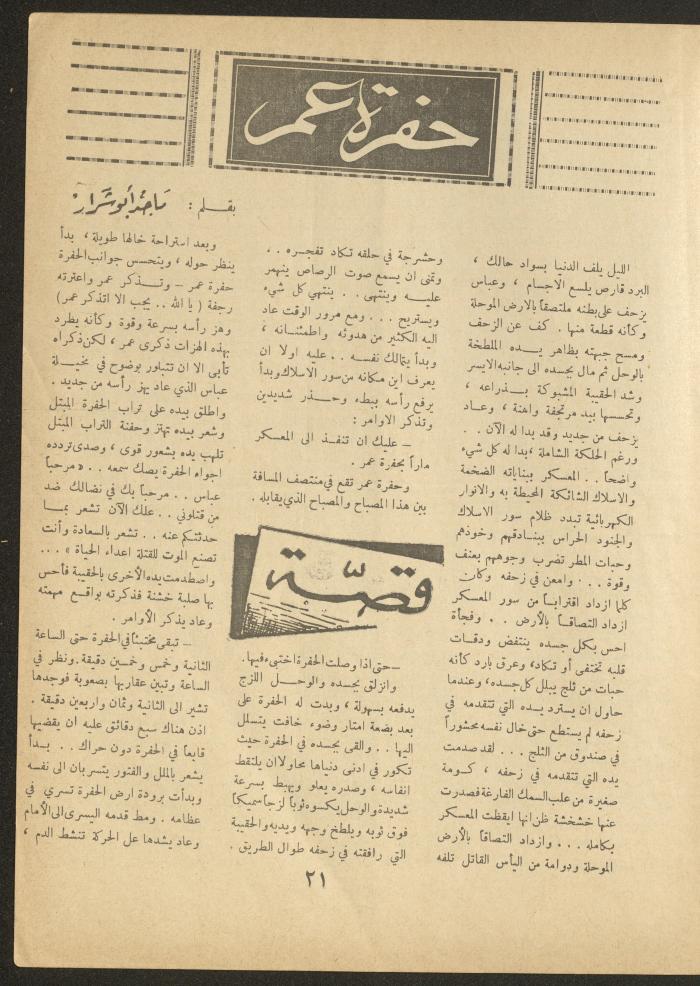 حفرة عمر
بقلم : ماجد أبو شرار
الليل يلف الدنيا بسواد حالك ،
البرد قارص يلسع الاجسام ، وعباس
يزحف على بطنه ملتصقاً بالارض الموحلة
وكأنه قطعة منها . كف عن الزحف
ومسح جبهته بظاهر يده الملطخة
بالوحل ثم مال بجسده الى جانبه الايسر
وشد الحقيبة المشبوكة بذراعه ،
وتحسسها بيد مرتجفة واهنة ، وعاد
يزحف من جديد وقد بدا له الآن . .
ورغم الحلكة الشاملة ، بدا له كل شيء
واضحاً . . المعسكر ببناياته الضخمة
والاسلاك الشائكة المحيطة به والانوار
الكهربائية تبدد ظلام سور الاسلاك
والجنود الحراس ببنادقهم وخوذهم
وحبات المطر تضرب وجوههم بعنف
وقوة . . . وامعن في زحفه وكان
كلما ازداد اقتراباً من سور المعسكر
ازداد التصاقاً بالأرض . . وفجأة
احس بكل جسده ينتفض ودقات
قلبه تختفي أو تكاد ، وعرق بارد كأنه
حبات من ثلج يبلل كل جسده ، وعندما
حاول ان يسترد يده التي تتقدمه في
زحفه لم يستطع حتى خال نفسه محشوراً
في صندوق من الثلج . . . لقد صدمت
يده التي تتقدمه في زحفه ، كومة
صغيرة من علب السمك الفارغة فصدرت
عنها خشخشة ظن انها ايقظت المعسكر
بكامله . . . وازداد التصاقاً بالأرض
الموحلة ودوامة من اليأس القاتل تلفه
وحشرجة في حلقه تكاد تفجره . .
وتمنى ان يسمع صوت الرصاص ينهمر
عليه وينتهي . . ينتهي كل شيء
ويستريح . . . ومع مرور الوقت عاد
اليه الكثير من هدوئه واطمئنانه ،
وبدأ يتمالك نفسه . . عليه اولا ان
يعرف اين مكانه من سور الاسلاك وبدأ
يرفع رأسه ببطء وحذر شديدين
وتذكر الاوامر :
— عليك ان تنفذ الى المعسكر
ماراً بحفرة عمر .
وحفرة عمر تقع في منتصف المسافة
بين هذا المصباح والمصباح الذي يقابله .
قصّة
— حتى اذا وصلت الحفرة اختبىء فيها .
وانزلق بجسده والوحل اللزج
يدفعه بسهولة ، وبدت له الحفرة على
بعد بضعة امتار وضوء خافت يتسلل
اليها . . والقى بجسده في الحفرة حيث
تكور في ادنى دنياها محاولا ان يلتقط
انفاسه ، وصدره يعلو ويهبط بسرعة
شديدة والوحل يكسوه ثوباً لزجاً سميكاً
فوق ثوبه ويلطخ وجهه ويديه والحقيبة
التي رافقته في زحفه طوال الطريق .
وبعد استراحة خالها طويلة ، بدأ
ينظر حوله ، ويتحسس جوانب الحفرة
حفرة عمر – وتذكر عمر واعترته
رجفة ( يا الله . . يجب الا اتذكر عمر )
وهز رأسه بسرعة وقوة وكأنه يطرد
بهذه الهزات ذكرى عمر ، لكن ذكراه
تأبى الا ان تتبلور بوضوح في مخيلة
عباس الذي عاد يهز رأسه من جديد .
واطلق بيده على تراب الحفرة المبتل
وشعر بيده تهتز وحفنة التراب المبتل
تلهب يده بشعور قوى ، وصدى تردده
اجواء الحفرة يصك سمعه . . « مرحباً
عباس . . مرحباً بك في نضالك ضد
من قتلوني . . علك الآن تشعر بما
حدثتكم عنه . . تشعر بالسعادة وأنت
تصنع الموت للقتلة اعداء الحياة » . . .
واصطدمت يده الأخرى بالحقيبة فأحس
بها صلبة خشنة فذكرته بواقع مهمته
وعاد يذكر الأوامر .
— تبقى مختبئاً في الحفرة حتى الساعة
الثانية وخمس وخمسين دقيقة . ونظر في
الساعة وتبين عقاربها بصعوبة فوجدها
تشير الى الثانية وثمان واربعين دقيقة .
اذن هناك سبع دقائق عليه ان يقضيها
قابعاً في الحفرة دون حراك . . بدأ
يشعر بالملل والفتور يتسربان الى نفسه
وبدأت برودة ارض الحفرة تسري في
عظامه . ومط قدمه اليسرى الى الأمام
وعاد يشدها عل الحركة تنشط الدم ،
٢١